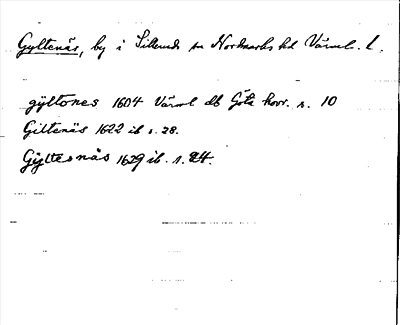 Gyltenäs, by i Silleruds sn Nordmarks hd Värml. l.
gyltones 1604 Värml db Göta hovr. s. 10
Giltenäs 1622 ib s. 28.
Gyltesnäs 1629 ib. s. 24.